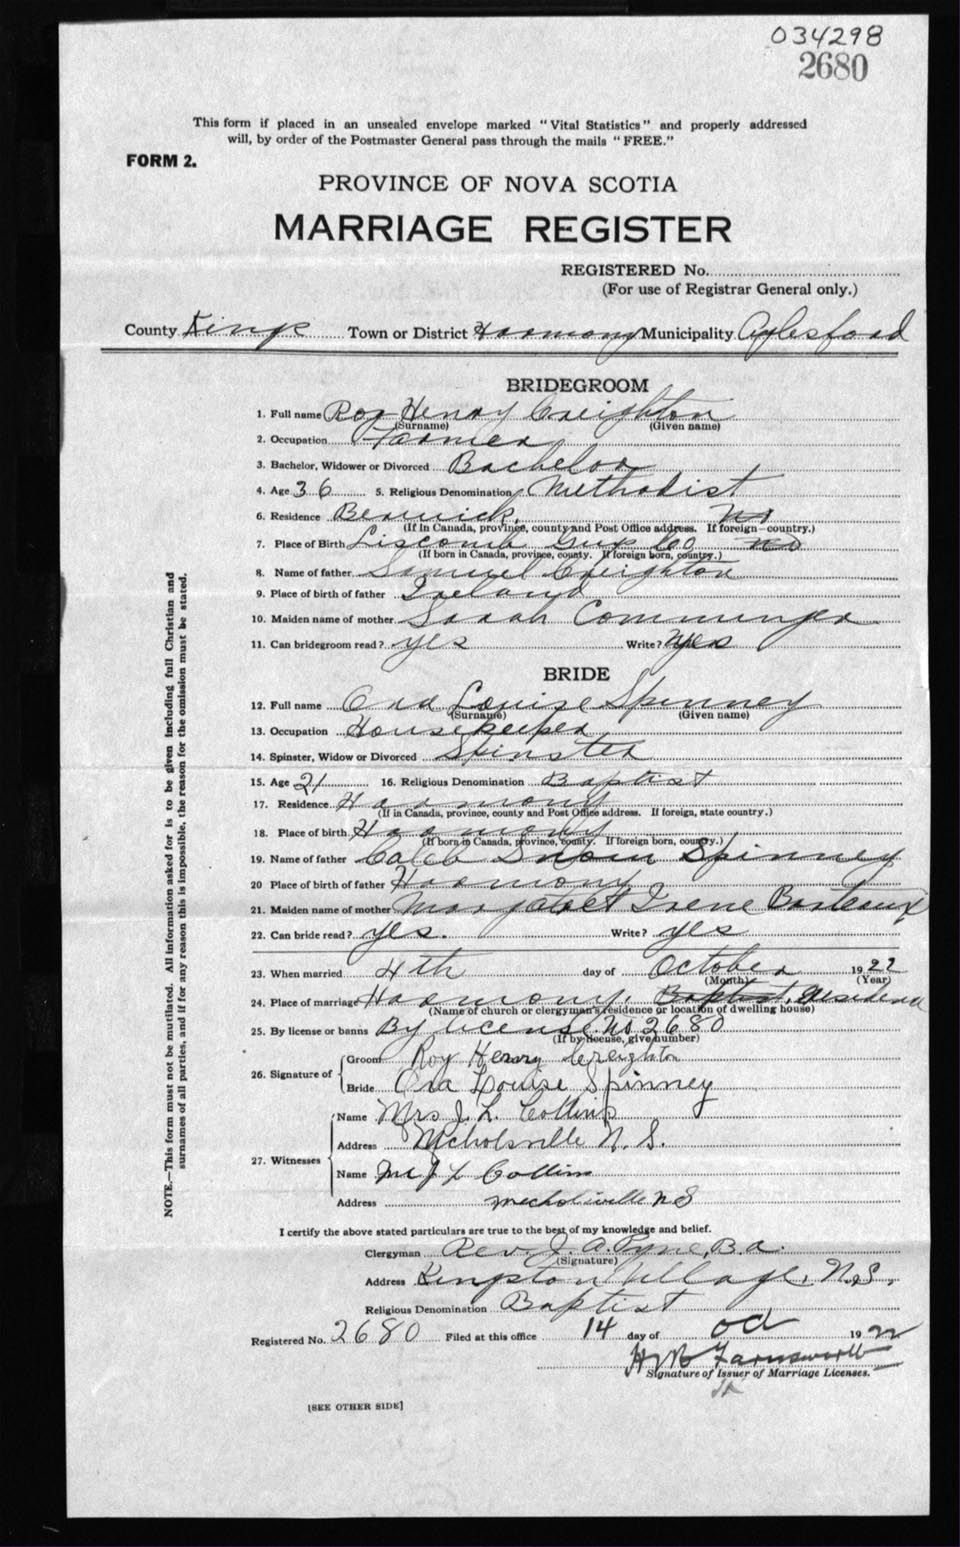 034298
2680
This form if placed in an unsealed envelope marked "Vital Statistics" and properly addressed
will, by order of the Postmaster General pass through the mails "FREE."
FORM 2.
PROVINCE OF NOVA SCOTIA
MARRIAGE REGISTER
REGISTERED No.
(For use of Registrar General only.)
County Kings Town or District Harmony Municipality Aylesford
BRIDEGROOM
1. Full name Roy Henry Creighton
(Surname) (Given name)
2. Occupation Farmer
3. Bachelor, Widower or Divorced Bachelor
4. Age 36 5. Religious Denomination Methodist
6. Residence Berwick, No
(If in Canada, province, county and Post Office address. If foreign country.)
7. Place of Birth Liscomb Guy Co No
(If born in Canada, province, county. If foreign born, country.)
8. Name of father Samuel Creighton
9. Place of birth of father Ireland
10. Maiden name of mother Sarah Comminger
11. Can bridegroom read? yes Write? yes
BRIDE
12. Full name Ora Louise Spinney
(Surname) (Given name)
13. Occupation Housekeeper
14. Spinster, Widow or Divorced Spinster
15. Age 21 16. Religious Denomination Baptist
17. Residence Harmony
(If in Canada, province, county and Post Office address. If foreign, state country.)
18. Place of birth Harmony
(If born in Canada, province, county. If foreign born, country.)
19. Name of father Caleb Snow Spinney
20 Place of birth of father Harmony
21. Maiden name of mother Margaret Irene Barteaux
22. Can bride read? yes. Write? yes
23. When married 4th day of October 1922
(Month) (Year)
24. Place of marriage Harmony, Baptist, Residence
(Name of church or clergyman's residence or location of dwelling house)
25. By license or banns By license No 2680
(If by license, give number)
26. Signature of Groom Roy Henry Creighton
Bride Ora Louise Spinney
27. Witnesses Name Mrs J. L. Collins
Address Nicholsville N. S.
Name Mr J L Collins
Address Nicholsville N S
I certify the above stated particulars are true to the best of my knowledge and belief.
Clergyman Rev. J. A. Pyne, B.A.
(Signature)
Address Kingston Village, N.S.,
Religious Denomination Baptist
Registered No. 2680 Filed at this office 14 day of Oct 1922
H Farnsworth
Signature of Issuer of Marriage Licenses.
[SEE OTHER SIDE]
NOTE.—This form must not be mutilated. All information asked for is to be given including full Christian and
surnames of all parties, and if for any reason this is impossible, the reason for the omission must be stated.